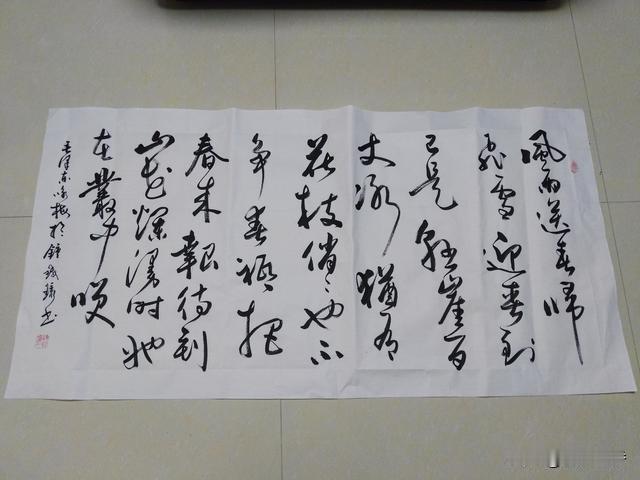 風雨送春歸
飛雪迎春到
已是懸崖百
丈冰猶有
花枝俏〻也不
争春祇把
春来報待到
山花爛漫時她
在叢中笑
毛泽东咏梅 书